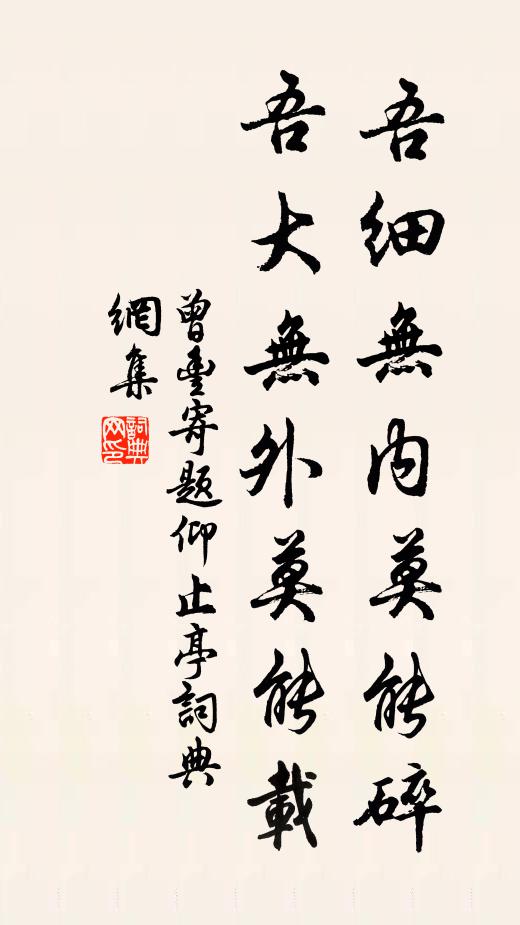 吾細無內莫能碎
吾大無外莫能載
曾豐寄題仰止亭詞典
網集
詞典
网印